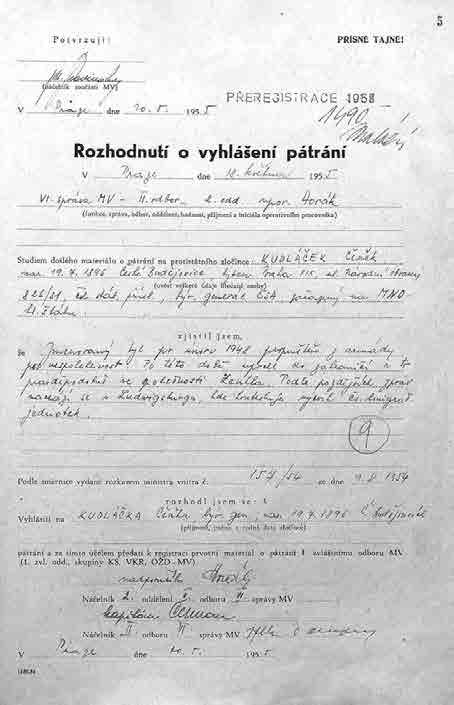 5
Potvrzuji:
PŘÍSNĚ TAJNÉ!
(náčelník součásti MV)
V Praze dne 20. 5. 1955
PŘEREGISTRACE 1958
1490
Rozhodnutí o vyhlášení pátrání
V Praze dne 18. května 1955
VI. správa MV – II. odbor – 2. odd. npor. Horák
(funkce, správa, odbor, oddělení, hodnost, příjmení a iniciála operativního pracovníka)
Studiem došlého materiálu o pátrání na protistátního zločince: KUDLÁČEK Čeněk
nar. 19. 7. 1896 České Budějovice bytem Praha III., ul. Karmelitská
(uvést veškeré údaje hledané osoby)
čs. stát. přísl., býv. generál ČSA, MNO
zjistil jsem,
že Jmenovaný byl po únoru 1948 propuštěn z armády
pro nespolehlivost. Po této době uprchl do zahraničí a to
pravděpodobně ve společnosti Zenkla. Podle pozdějších zpráv
nachází se v Ludwigsburgu, kde výcvik čs. emigrač.
jednotek.
9
Podle směrnice vydané rozkazem ministra vnitra č. 154/54 ze dne 9. 8. 1954
rozhodl jsem se: 1
Vyhlásiti na KUDLÁČKA Čeňka býv. gen., nar. 19. 7. 1896 Č. Budějovice
(příjmení, jméno a rodná data zločince)
pátrání a za tímto účelem předati k registraci prvotní materiál o pátrání 1 zvláštnímu odboru MV
(1. zvl. odd., skupiny KS, VKR, OŽD-MV)
nadporučík
Náčelník 2. oddělení II. odboru VI. správy MV
kapitán
Náčelník II. odboru VI. správy MV
V Praze dne 20. 5. 1955